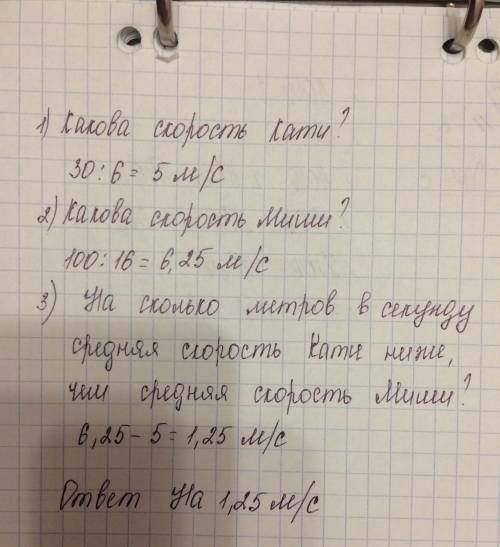 1) Какова скорость Кати?
30:6 = 5 м/с
2) Какова скорость Миши?
100:16 = 6,25 м/с
3) На сколько метров в секунду
средняя скорость Кати ниже,
чем средняя скорость Миши?
6,25 - 5 = 1,25 м/с
Ответ На 1,25 м/с